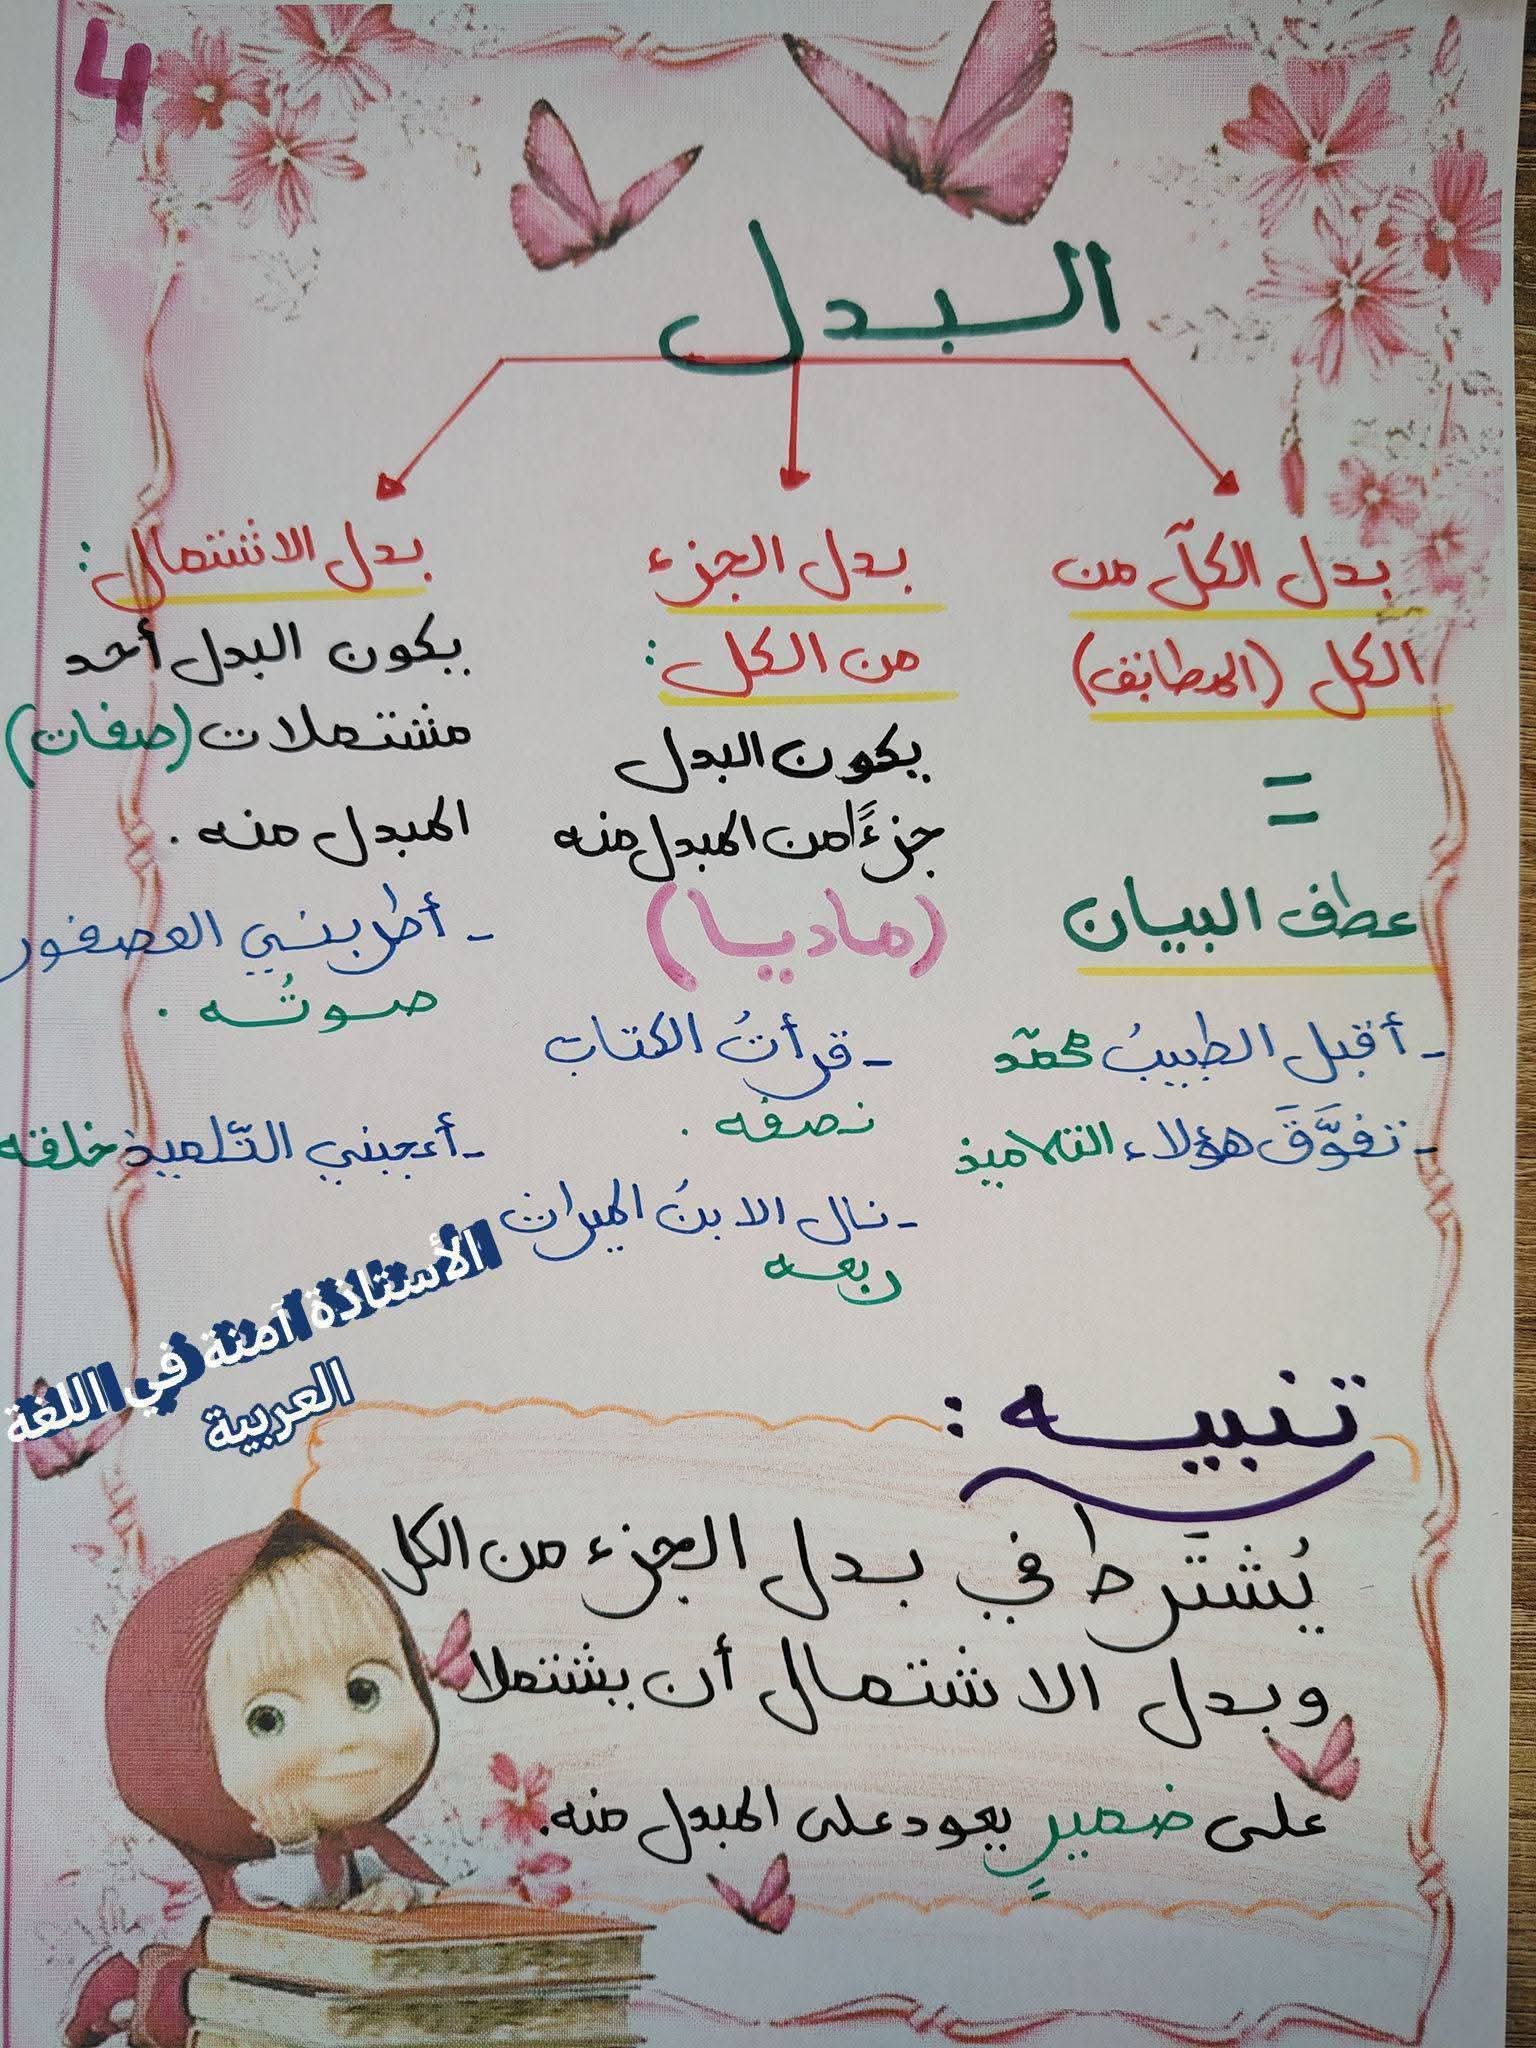 4
البدل
بدل الكلّ من
الكل (المطابق)
=
عطف البيان
- أقبل الطبيبُ محمّد
- تفوَّقَ هؤلاء التلاميذ
بدل الجزء
من الكل :
يكون البدل
جزءًا من المبدل منه
(ماديا)
- قرأتُ الكتاب
نصفه .
- نال الابنُ الميراث
ربعه
بدل الاشتمال :
يكون البدل أحد
مشتملات (صفات)
المبدل منه .
- أطربني العصفور
صوتُه .
- أعجبني التّلميذ خلقه
الأستاذة آمنة في اللغة
العربية
تنبيه :
يُشتَرط في بدل الجزء من الكل
وبدل الاشتمال أن يشتملا
على ضميرٍ يعود على المبدل منه.